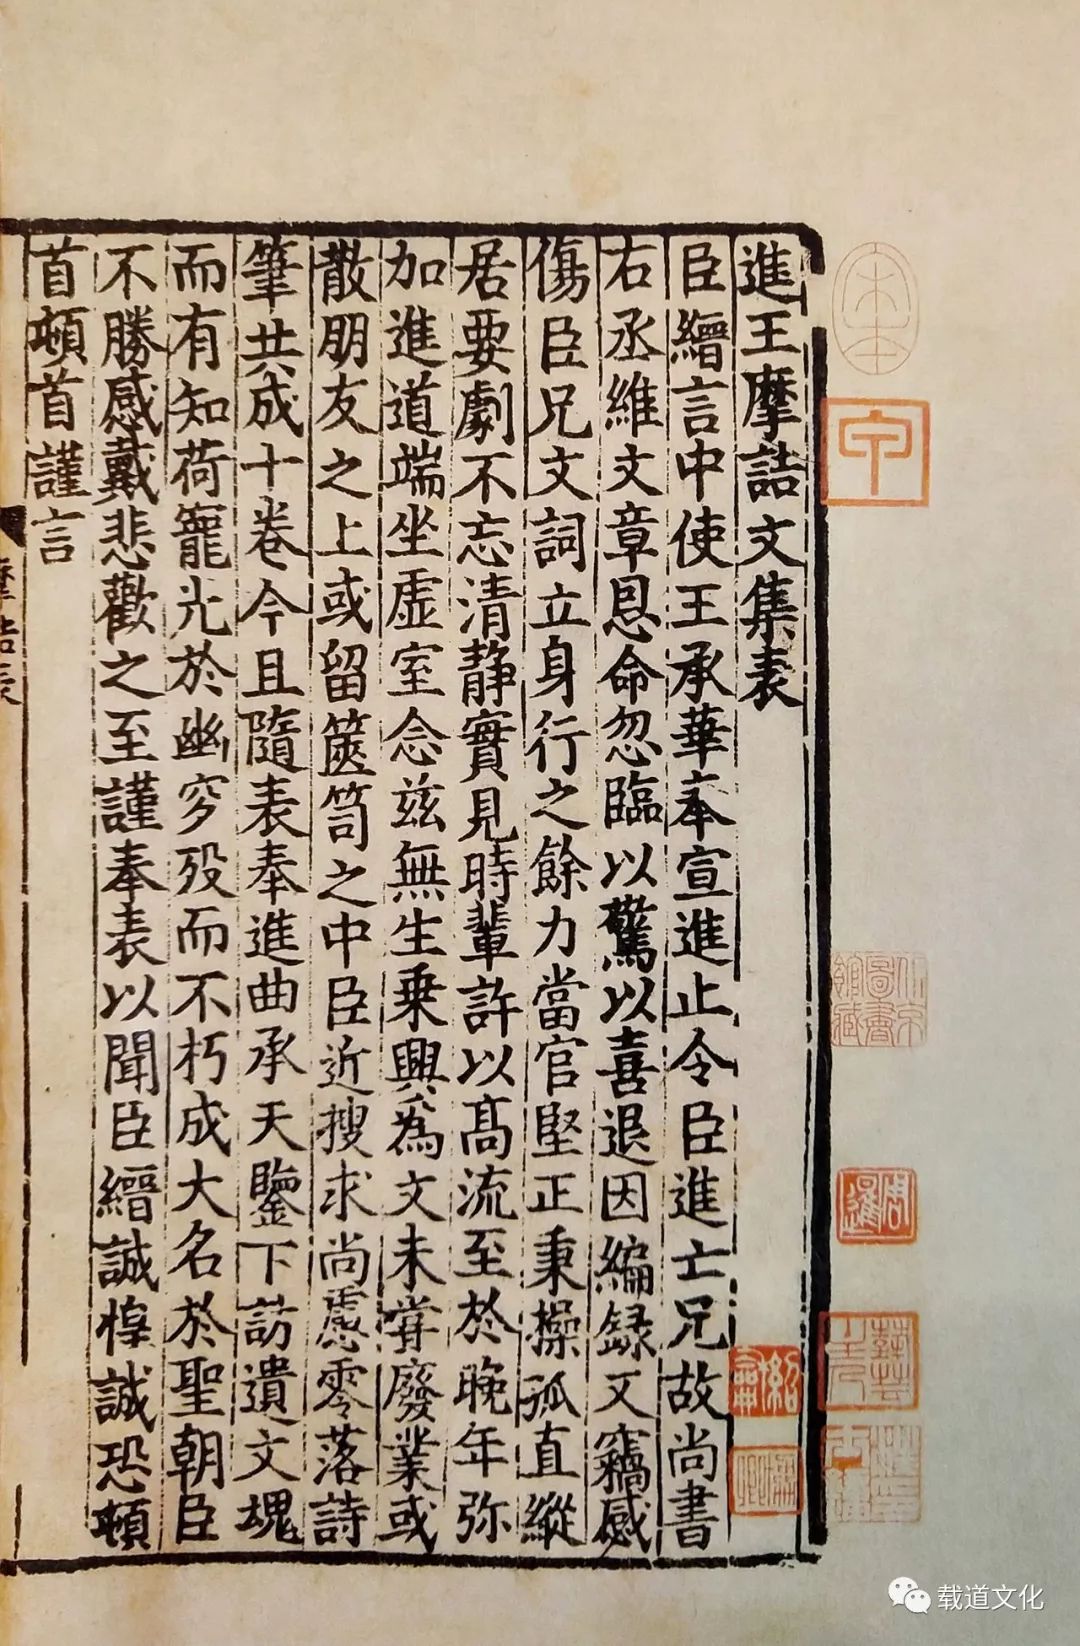 宋本
甲
北京圖書館藏
周暹
進王摩詰文集表
臣縉言中使王承華奉宣進止令臣進亡兄故尚書
右丞維文章恩命忽臨以驚以喜退因編録又竊感
傷臣兄文詞立身行之餘力當官堅正秉操孤直縱
居要劇不忘清静實見時輩許以髙流至於晚年弥
加進道端坐虚室念兹無生乗興為文未甞廢業或
散朋友之上或留篋笥之中臣近搜求尚慮零落詩
筆共成十卷今且隨表奉進曲承天鑒下訪遺文魂
而有知荷寵光於幽穸歿而不朽成大名於聖朝臣
不勝感戴悲歡之至謹奉表以聞臣縉誠惶誠恐頓
首頓首謹言
载道文化